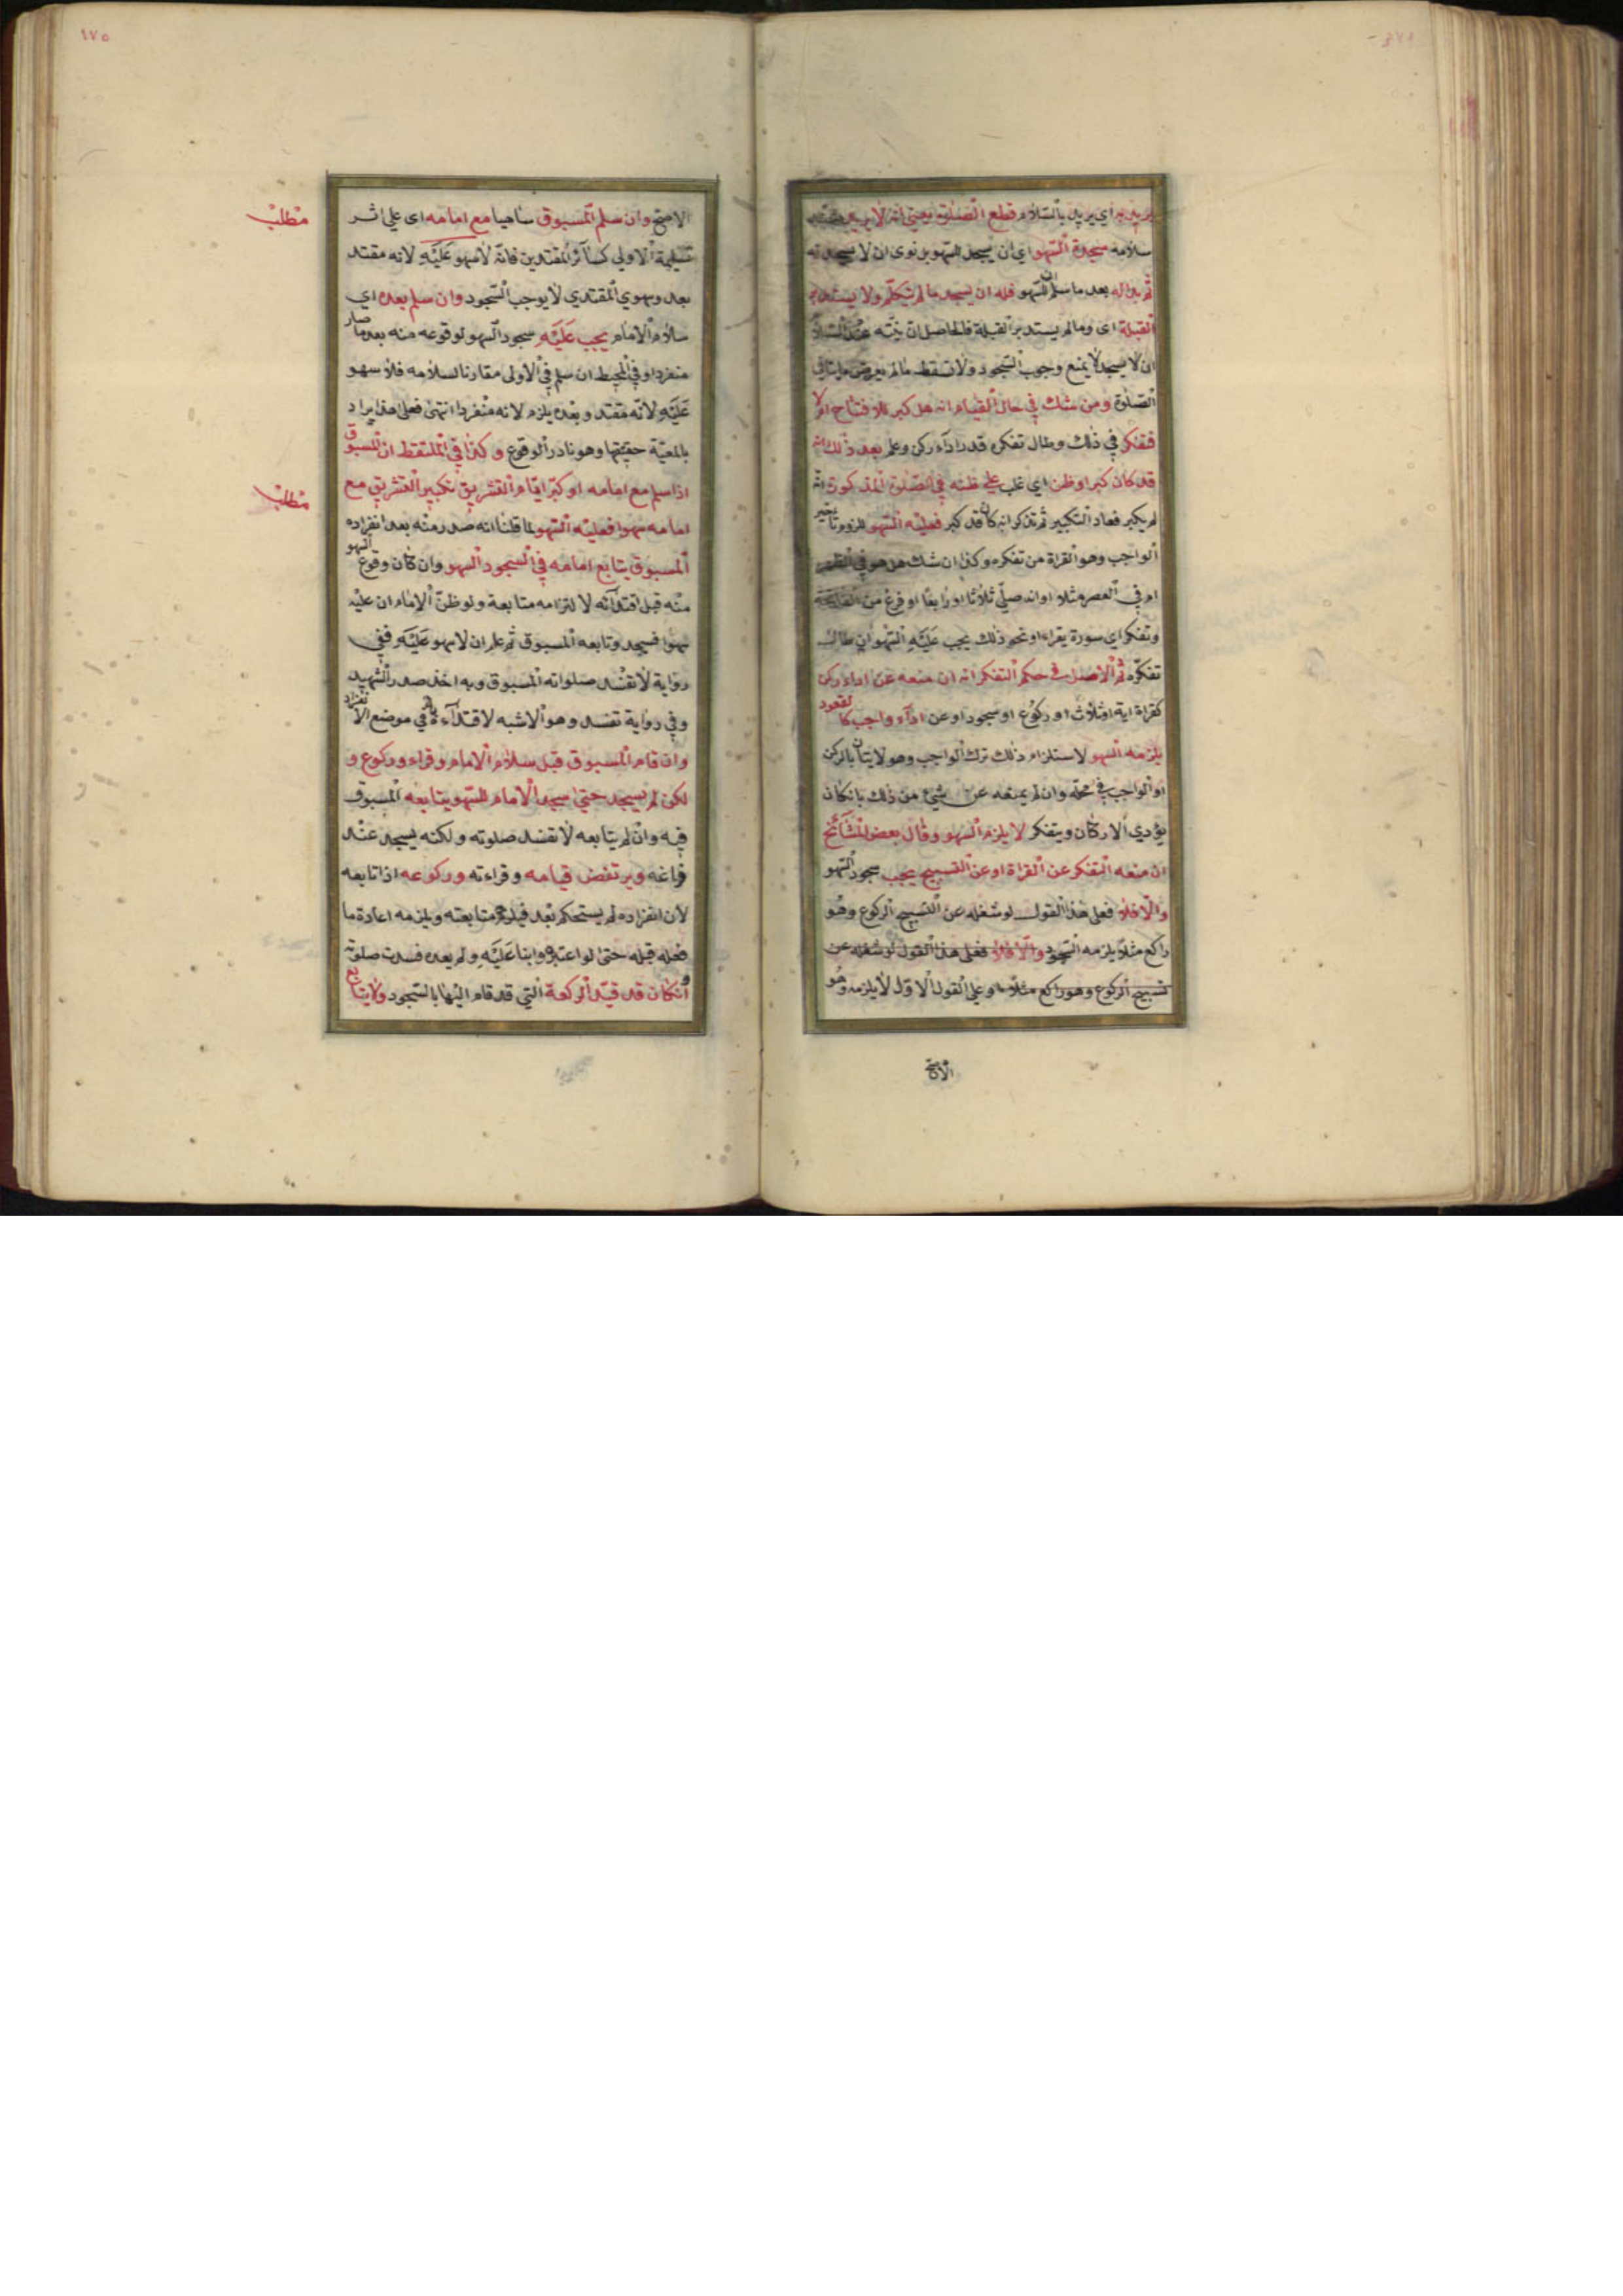 يريد به اي يريد بالسلام قطع الصلوة يعني انه لا يريد
سلامه سجدة السهو اي ان يسجد للسهو بل نوى ان لا يسجد له
ثم بدا له بعد ما سلم ان للسهو فله ان يسجد ما لم يتكلم ولا يستدبر
القبلة اى وما لم يستدبر القبلة فالحاصل ان نيته عند السلام
ان لا يسجد لا يمنع وجوب السجود ولا تسقط مالم يعرض ما ينافى
الصلوة ومن شك في حال القيام انه هل كبر للافتتاح ام لا
فتفكر في ذلك وطال تفكره قدر اداء ركن وعلم بعد ذلك انه
قد كان كبر او ظن اي غلب على ظنه في الصلوة المذكورة انه
لم يكبر فعاد التكبير ثم تذكر انه كان قد كبر فعليه السهو للزوم تاخير
الواجب وهو القراة من تفكره وكذا ان شك هل هو في الظهر
ام في العصر مثلا او انه صلى ثلاثا او رابعا او فرغ من الفاتحة
وتفكر اي سورة يقراء او نحو ذلك يجب عليه السهو ان طال
تفكره ثم الاصل في حكم التفكر انه ان منعه عن اداء ركن
كقراة اية او ثلاث او ركوع او سجود او عن اداء واجب كالقعود
يلزمه السهو لاستلزام ذلك ترك الواجب وهو لايتان بالركن
او الواجب في محله وان لم يمنعه عن شيء من ذلك بان كان
يؤدي الاركان ويتفكر لا يلزمه السهو وقال بعض المشائخ
ان منعه التفكر عن القراة او عن التسبيح يجب سجود السهو
والا فلا فعلى هذا القول لو شغله عن التسبيح الركوع وهو
راكع مثلا يلزمه السجود والا فلا فعلى هذا القول لو شغله عن
تسبيح الركوع وهو راكع مثلا وعلى القول الاول لا يلزمه وهو
الاصح
١٧٥
الاصح وان سلم المسبوق ساهيا مع امامه اى على اثر
مطلب
تسليمة الاولى كسائر المقتدين فانه لا سهو عليه لانه مقتد
بعد وسهوي المقتدي لا يوجب السجود وان سلم بعده اي
سلام الامام يجب عليه سجود السهو لوقوعه منه بعد ما صار
منفردا وفي المحيط ان سلم في الاولى مقارنا لسلامه فلا سهو
عليه لانه مقتد وبعده يلزم لانه منفردا انتهى فعلى هذا يراد
بالمعية حقيقتها وهو نادر الوقوع وكذا في الملتقط ان المسبوق
اذا سلم مع امامه او كبر ايام التشريق تكبير التشريق مع
مطلب
امامه سهوا فعليه السهو لما قلنا انه صدر منه بعد انفراده
المسبوق يتابع امامه في السجود السهو وان كان وقوع السهو
منه قبل اقتدائه لا لتزامه متابعة ولو ظن الامام ان عليه
سهوا فسجد وتابعه المسبوق ثم علم ان لا سهو عليه ففي
رواية لا تفسد صلواته المسبوق وبه اخذ صدر الشهيد
وفي رواية تفسد وهو الاشبه لاقتداءه في موضع الانفراد
وان قام المسبوق قبل سلام الامام وقراء وركوع و
لكن لم يسجد حتى سجد الامام للسهو يتابعه المسبوق
فيه وان لم يتابعه لا تفسد صلوته ولكنه يسجد عند
فراغه ويرتفض قيامه وقراءته وركوعه اذا تابعه
لان انفراده لم يستحكم بعد متابعته ويلزمه اعادة ما
فعله قبله حتى لو اعتبره وابنا عليه ولم يعده فسدت صلوته
وان كان قد قيد الركعة التي قد قام اليها بالسجود ولا يتابع